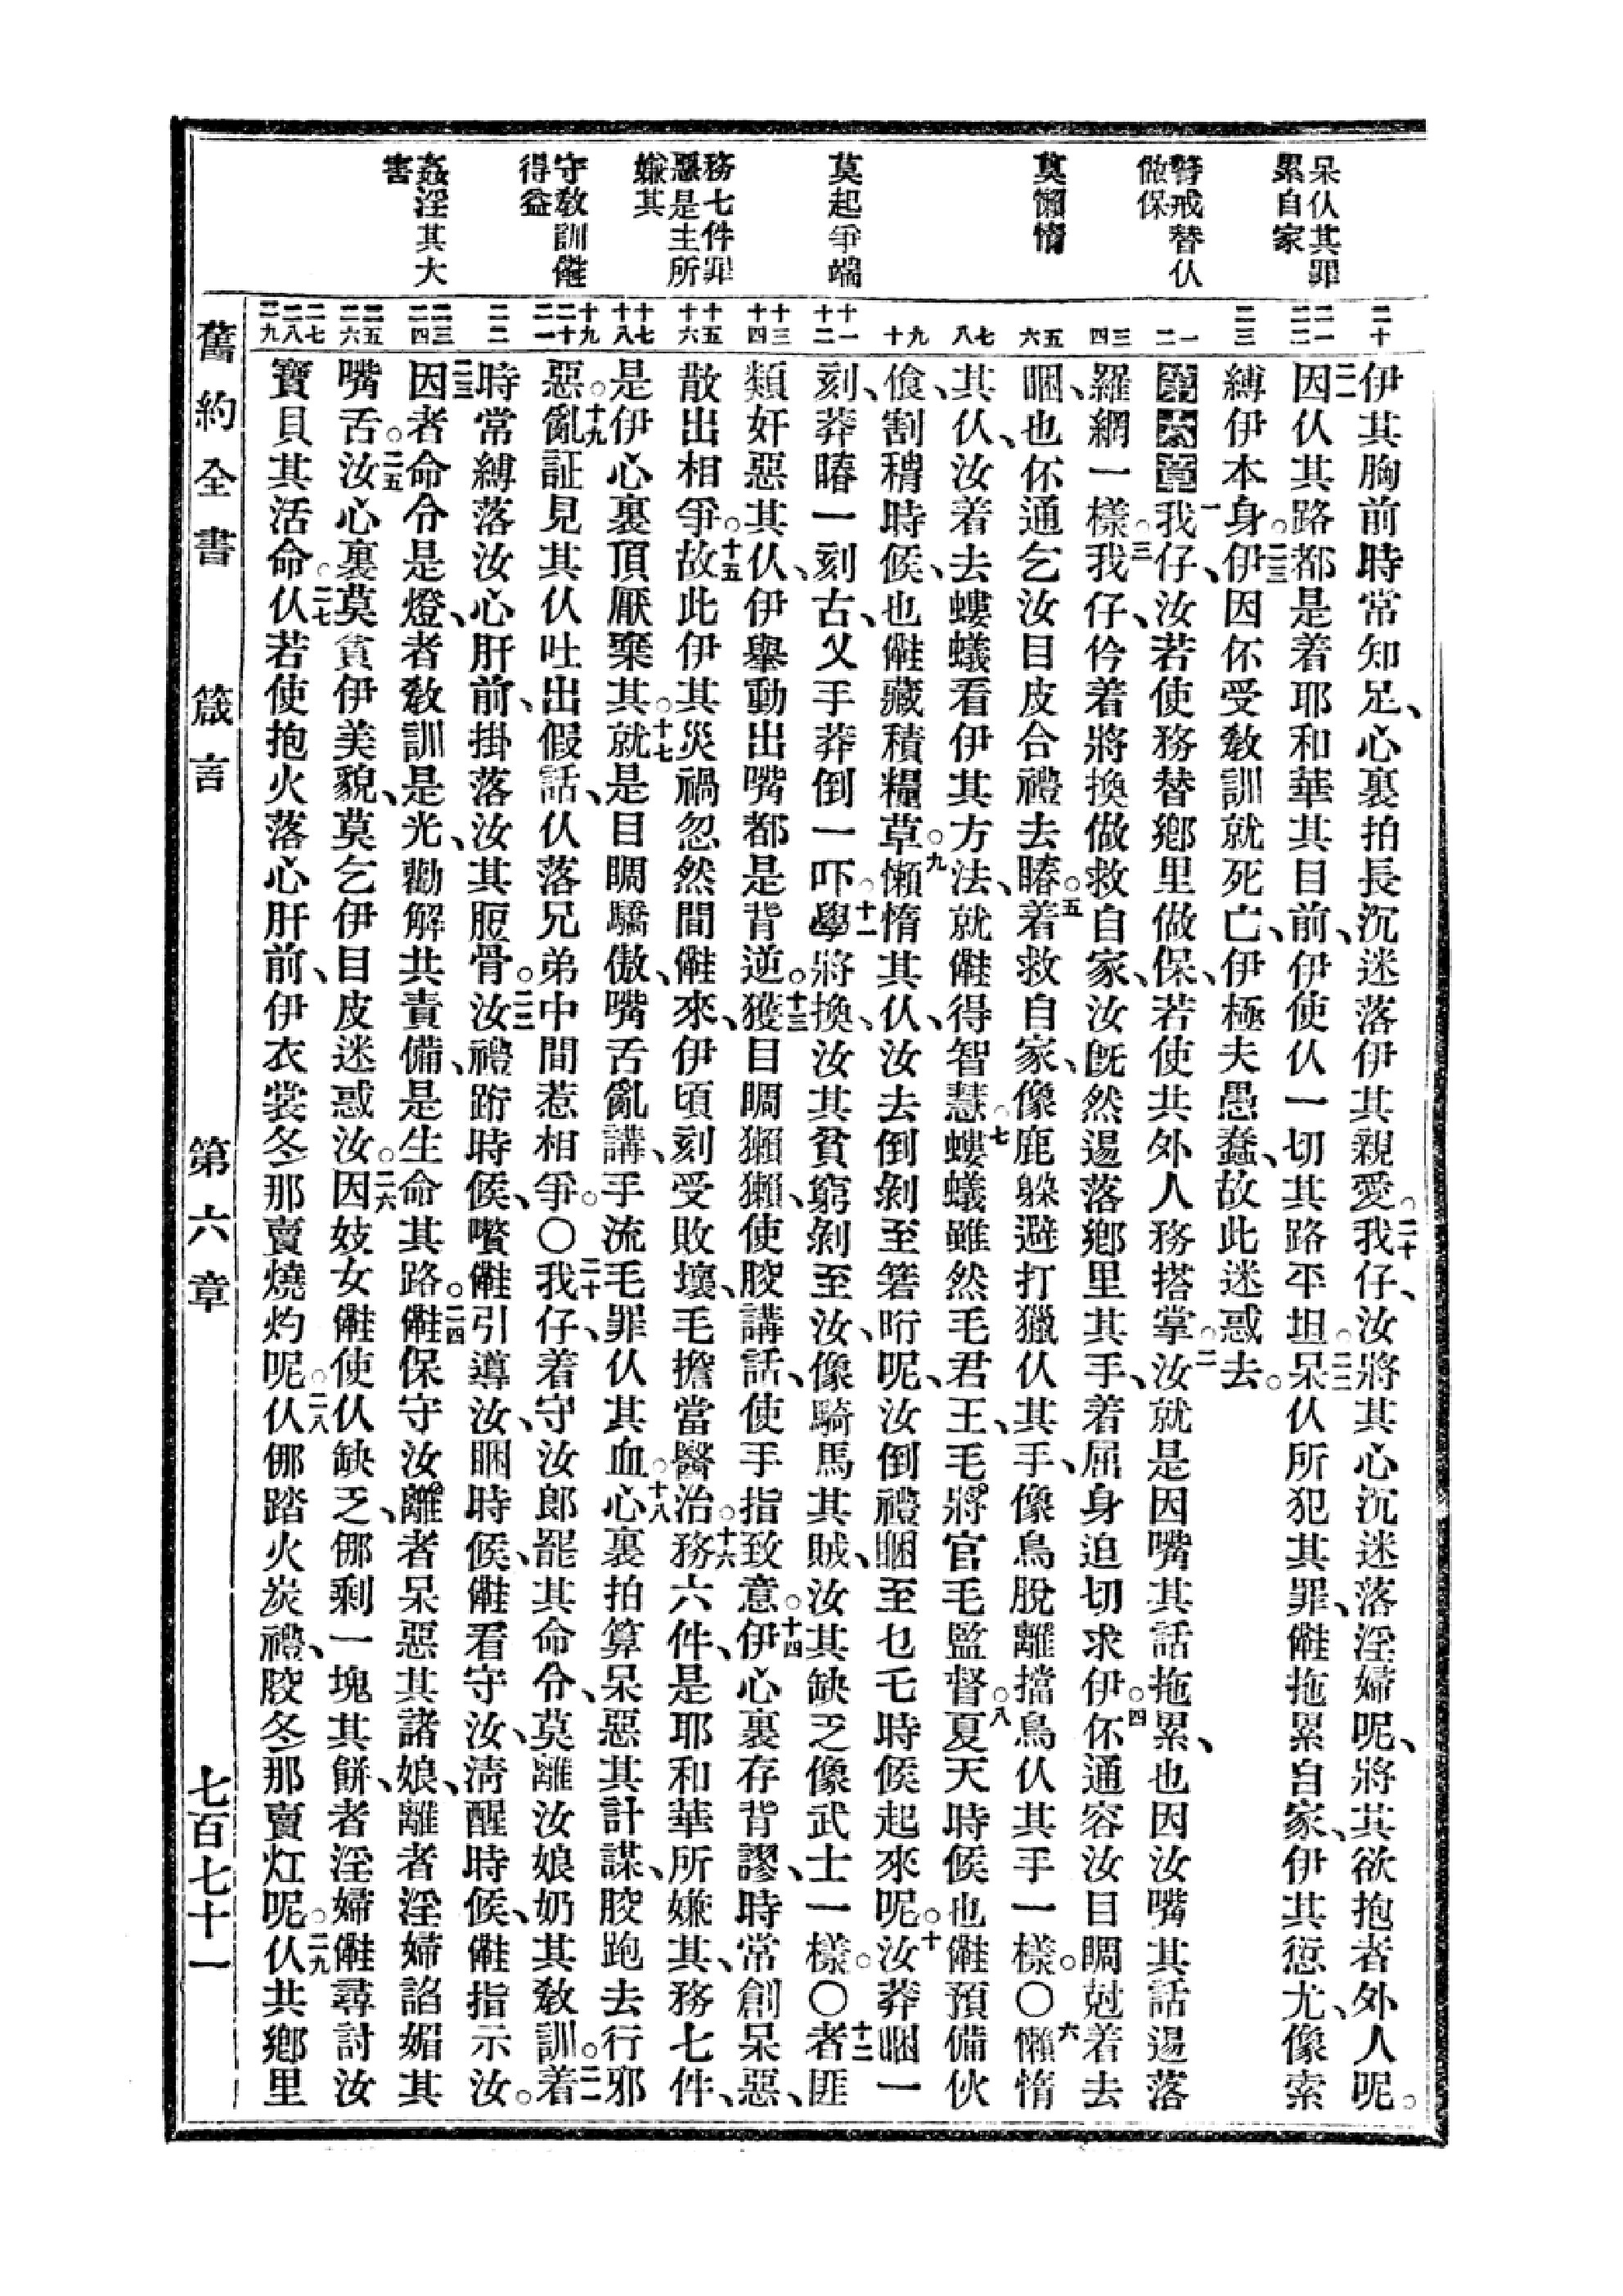 呆仈其罪
累自家
警戒替仈
做保
莫懶惰
莫起爭端
務七件罪
惡是主所
嫌其
守教訓𠆧
得益
姦淫其大
害
二十
二一
二二
二三
一
二
三
四
五
六
七
八
九
十
十一
十二
十三
十四
十五
十六
十七
十八
十九
二十
二一
二二
二三
二四
二五
二六
二七
二八
二九
伊其胸前時常知足、心裏拍長沉迷落伊其親愛。二十我仔、汝將其心沉迷落淫婦呢、將其欲抱者外人呢。
二一因仈其路都是着耶和華其目前、伊使仈一切其路平坦。二二呆仈所犯其罪、𠆧拖累自家、伊其愆尤、像索
縛伊本身。二三伊因伓受教訓就死亡、伊極夫愚蠢、故此迷惑去。
第六章一我仔、汝若使務替鄉里做保、若使共外人務搭掌。二汝就是因嘴其話拖累、也因汝嘴其話逿落
羅網一樣。三我仔、仱着將換做救自家、汝旣然逿落鄉里其手、着屈身迫切求伊。四伓通容汝目睭尅着去
睏、也伓通乞汝目皮合禮去䐁。五着救自家、像鹿躱避打獵仈其手、像鳥脫離擋鳥仈其手一樣。〇六懶惰
其仈、汝着去螻蟻看伊其方法、就𠆧得智慧。七螻蟻雖然毛君王、毛將官毛監督。八夏天時候也𠆧預備伙
飡、割稩時候、也𠆧藏積糧草。九懶惰其仈、汝去倒剝至箬㫄呢、汝倒禮睏至乜乇時候起來呢。十汝莽睏一
刻、莽䐁一刻、古乂手莽倒一吓。十一學將換、汝其貧窮剝至汝、像騎馬其賊、汝其缺乏像武士一樣。〇十二者匪
類奸惡其仈、伊舉動出嘴都是背逆。十三獲目睭獺獺、使骹講話、使手指致意。十四伊心裏存背謬、時常創呆惡、
散出相爭。十五故此伊其災禍忽然間𠆧來、伊頃刻受敗壞、毛擔當醫治。十六務六件、是耶和華所嫌其、務七件、
是伊心裏頂厭棄其。十七就是目睭驕傲、嘴舌亂講、手流毛罪仈其血。十八心裏拍算呆惡其計謀、骹跑去行邪
惡。十九亂証見其仈吐出假話、仈落兄弟中間惹相爭。〇二十我仔、着守汝郎罷其命令、莫離汝娘奶其教訓。二一着
時常縛落汝心肝前、掛落汝其脰骨。二二汝禮跨時候、嚽𠆧引導汝、睏時候、𠆧看守汝、淸醒時候、𠆧指示汝。
二三因者命令是燈、者教訓是光、勸解共責備、是生命其路。二四𠆧保守汝、離者呆惡其諸娘、離者淫婦諂媚其
嘴舌。二五汝心裏莫貪伊美貌、莫乞伊目皮迷惑汝。二六因妓女𠆧使仈缺乏、㑚剩一塊其餅、者淫婦𠆧尋討汝
寶貝其活命。二七仈若使抱火落心肝前、伊衣裳冬那賣燒灼呢。二八仈㑚踏火炭禮、骹冬那賣灴呢。二九仈共鄉里
舊約全書　箴言　第六章　七百七十一